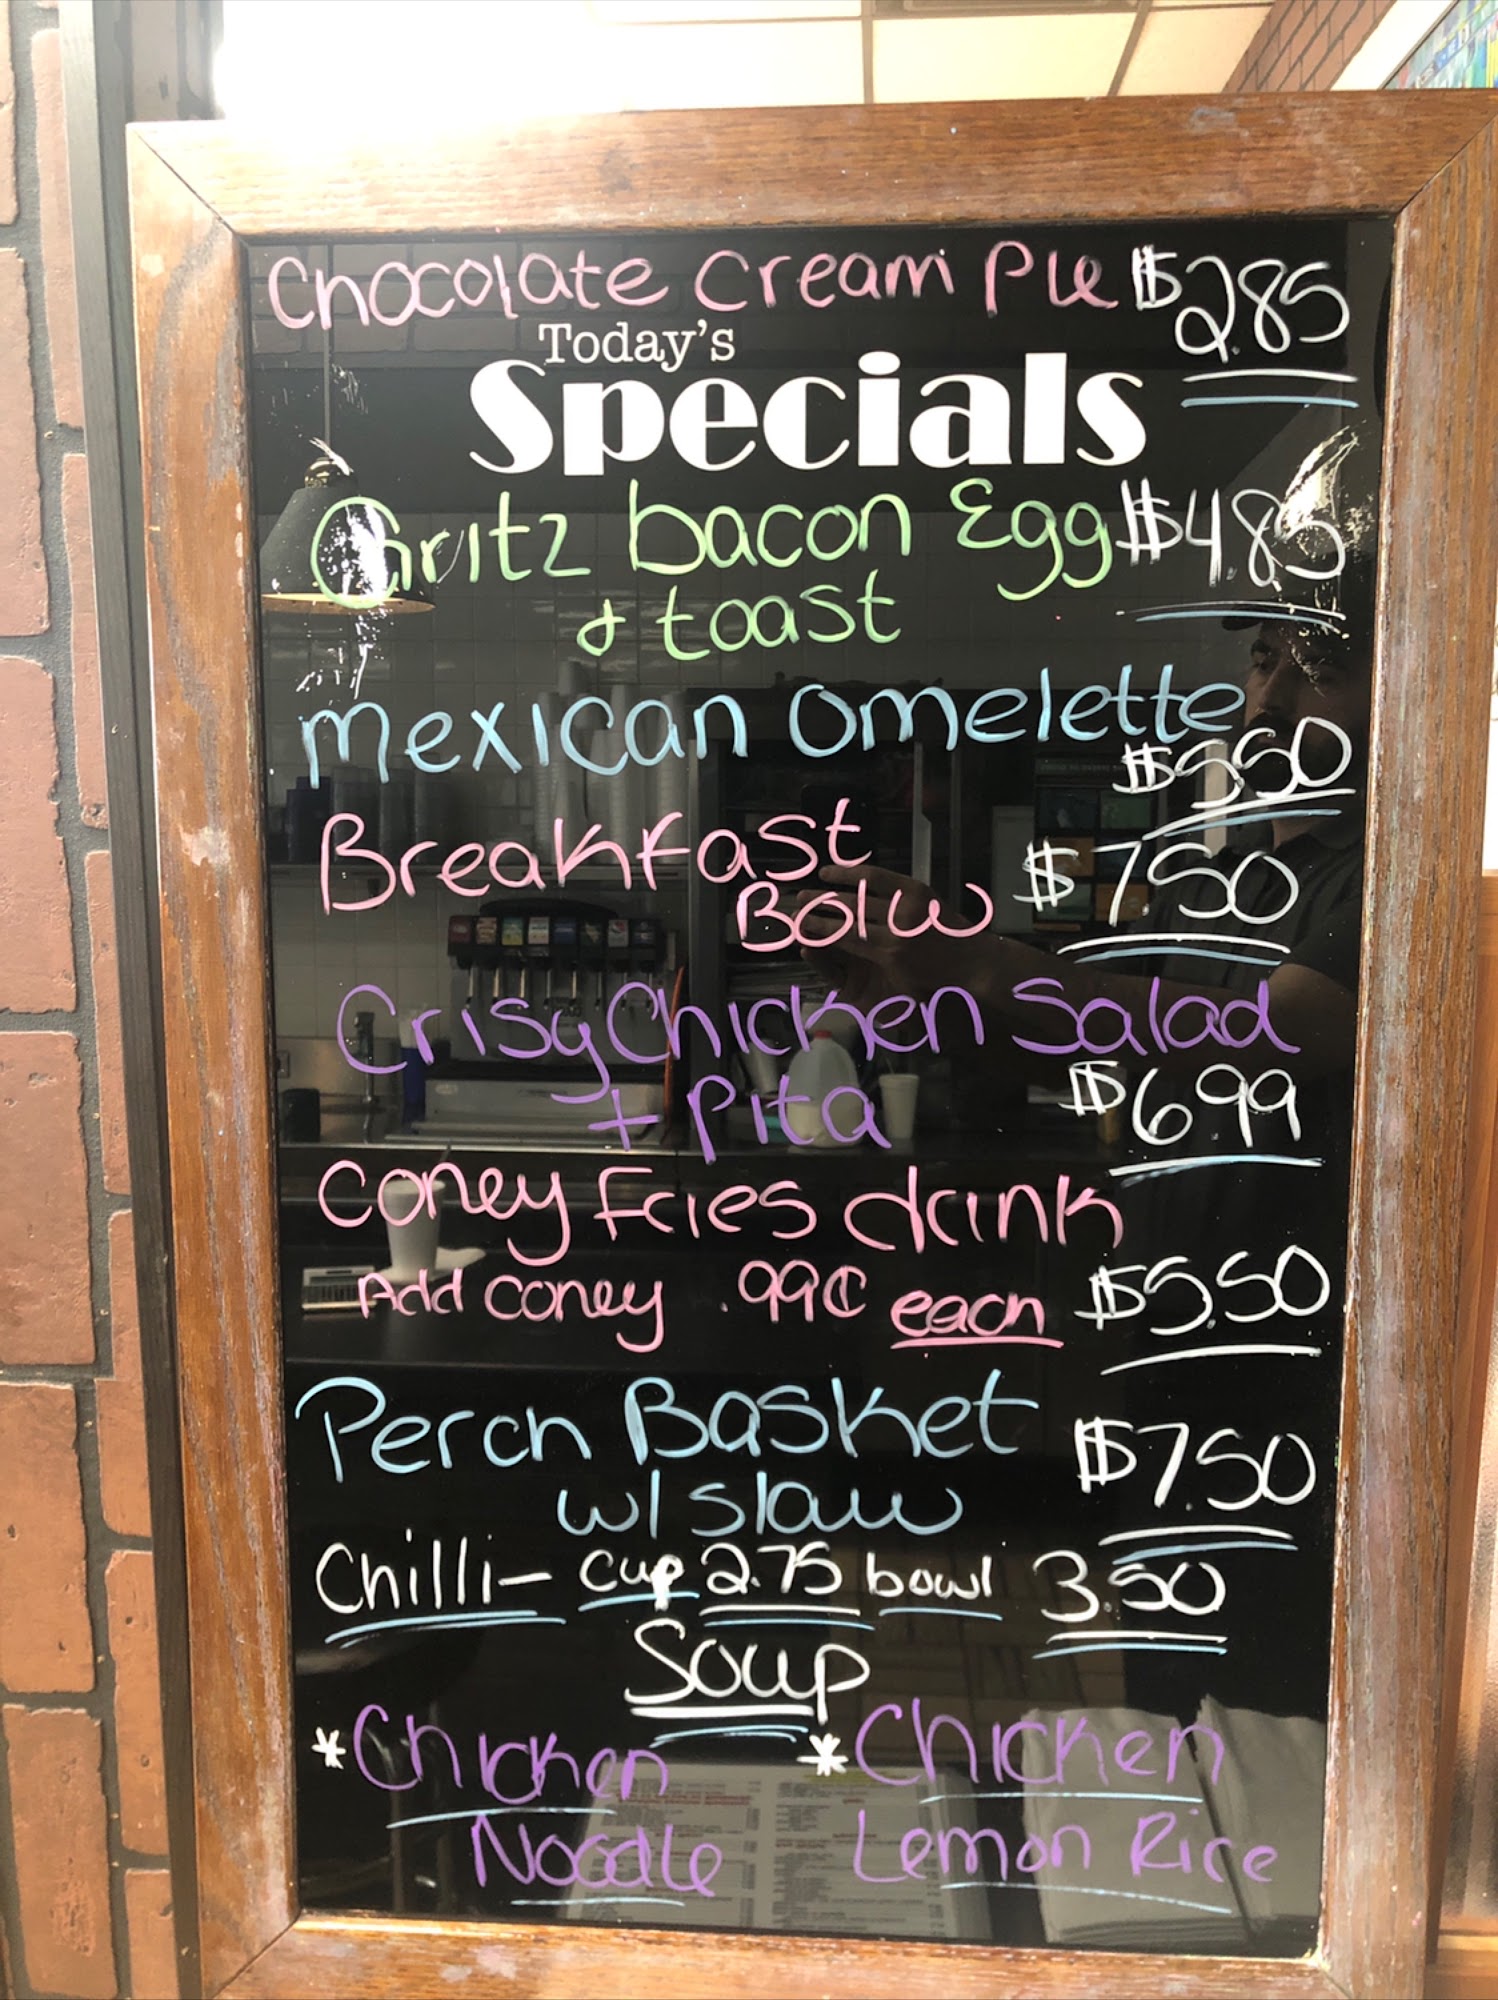 Chocolate Cream Pie $2.85
Today's
Specials
Gritz bacon Egg $4.85
& toast
Mexican Omelette
$5.50
Breakfast
Bolw $7.50
Crisy Chicken Salad
+ Pita $6.99
Coney Fries drink
Add Coney .99¢ each $5.50
Perch Basket $7.50
w/ slaw
Chilli- cup 2.75 bowl 3.50
Soup
*Chicken *Chicken
Noodle Lemon Rice